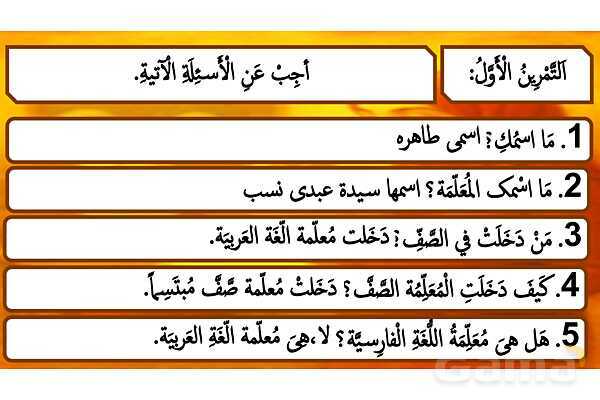 اَلتَّمْرِينُ الْأَوَّلُ:
أجِبْ عَنِ الْأَسئِلَةِ الْآتيةِ.
1. مَا اسْمُكِ؟ اسمی طاهره
2. مَا اسْمک المُعَلّمَة؟ اسمها سیدة عبدی نسب
3. مَنْ دَخَلَتْ في الصَّفِّ؟ دَخَلت مُعلمّة الّغَة العَربیَة.
4. کَیفَ دَخَلَتِ الْمُعَلِّمُة الصَّفَّ؟ دَخَلَتْ مُعلّمة صَّفَّ مُبتَسِماً.
5. هَل هیَ مُعَلِّمَةُ اللُّغَةِ الْفارِسیَّة؟ لا،هیَ مُعلّمة الّغَةِ العَربیَة.
Gama